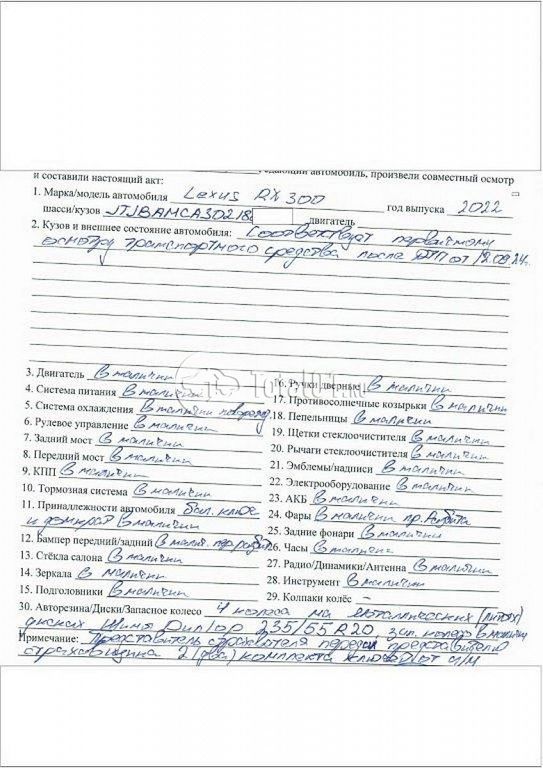 едающий автомобиль, произвели совместный осмотр
и составили настоящий акт:
1. Марка/модель автомобиля Lexus RX 300 год выпуска 2022
шасси/кузов JTJBAMCA30218 двигатель
2. Кузов и внешнее состояние автомобиля: Соответствует первичному
осмотру транспортного средства после ДТП от 12.09.24г.
TotalOT.ru
3. Двигатель в наличии
4. Система питания в наличии
5. Система охлаждения в наличии поврежд.
6. Рулевое управление в наличии
7. Задний мост в наличии
8. Передний мост в наличии
9. КПП в наличии
10. Тормозная система в наличии
11. Принадлежности автомобиля бал. ключ
и домкрат в наличии
12. Бампер передний/задний в налич. пер. разбит
13. Стёкла салона в наличии
14. Зеркала в наличии
15. Подголовники в наличии
16. Ручки дверные в наличии
17. Противосолнечные козырьки в наличии
18. Пепельницы в наличии
19. Щетки стеклоочистителя в наличии
20. Рычаги стеклоочистителя в наличии
21. Эмблемы/надписи в наличии
22. Электрооборудование в наличии
23. АКБ в наличии
24. Фары в наличии пр. разбита
25. Задние фонари в наличии
26. Часы в наличии
27. Радио/Динамики/Антенна в наличии
28. Инструмент в наличии
29. Колпаки колёс –
30. Авторезина/Диски/Запасное колесо 4 колеса на металлических (литых)
дисках шины Dunlop 235/55 R20, зап. колесо в наличии
Примечание: Представитель страхователя передал представителю
страховщика 2 (два) комплекта ключей от а/м